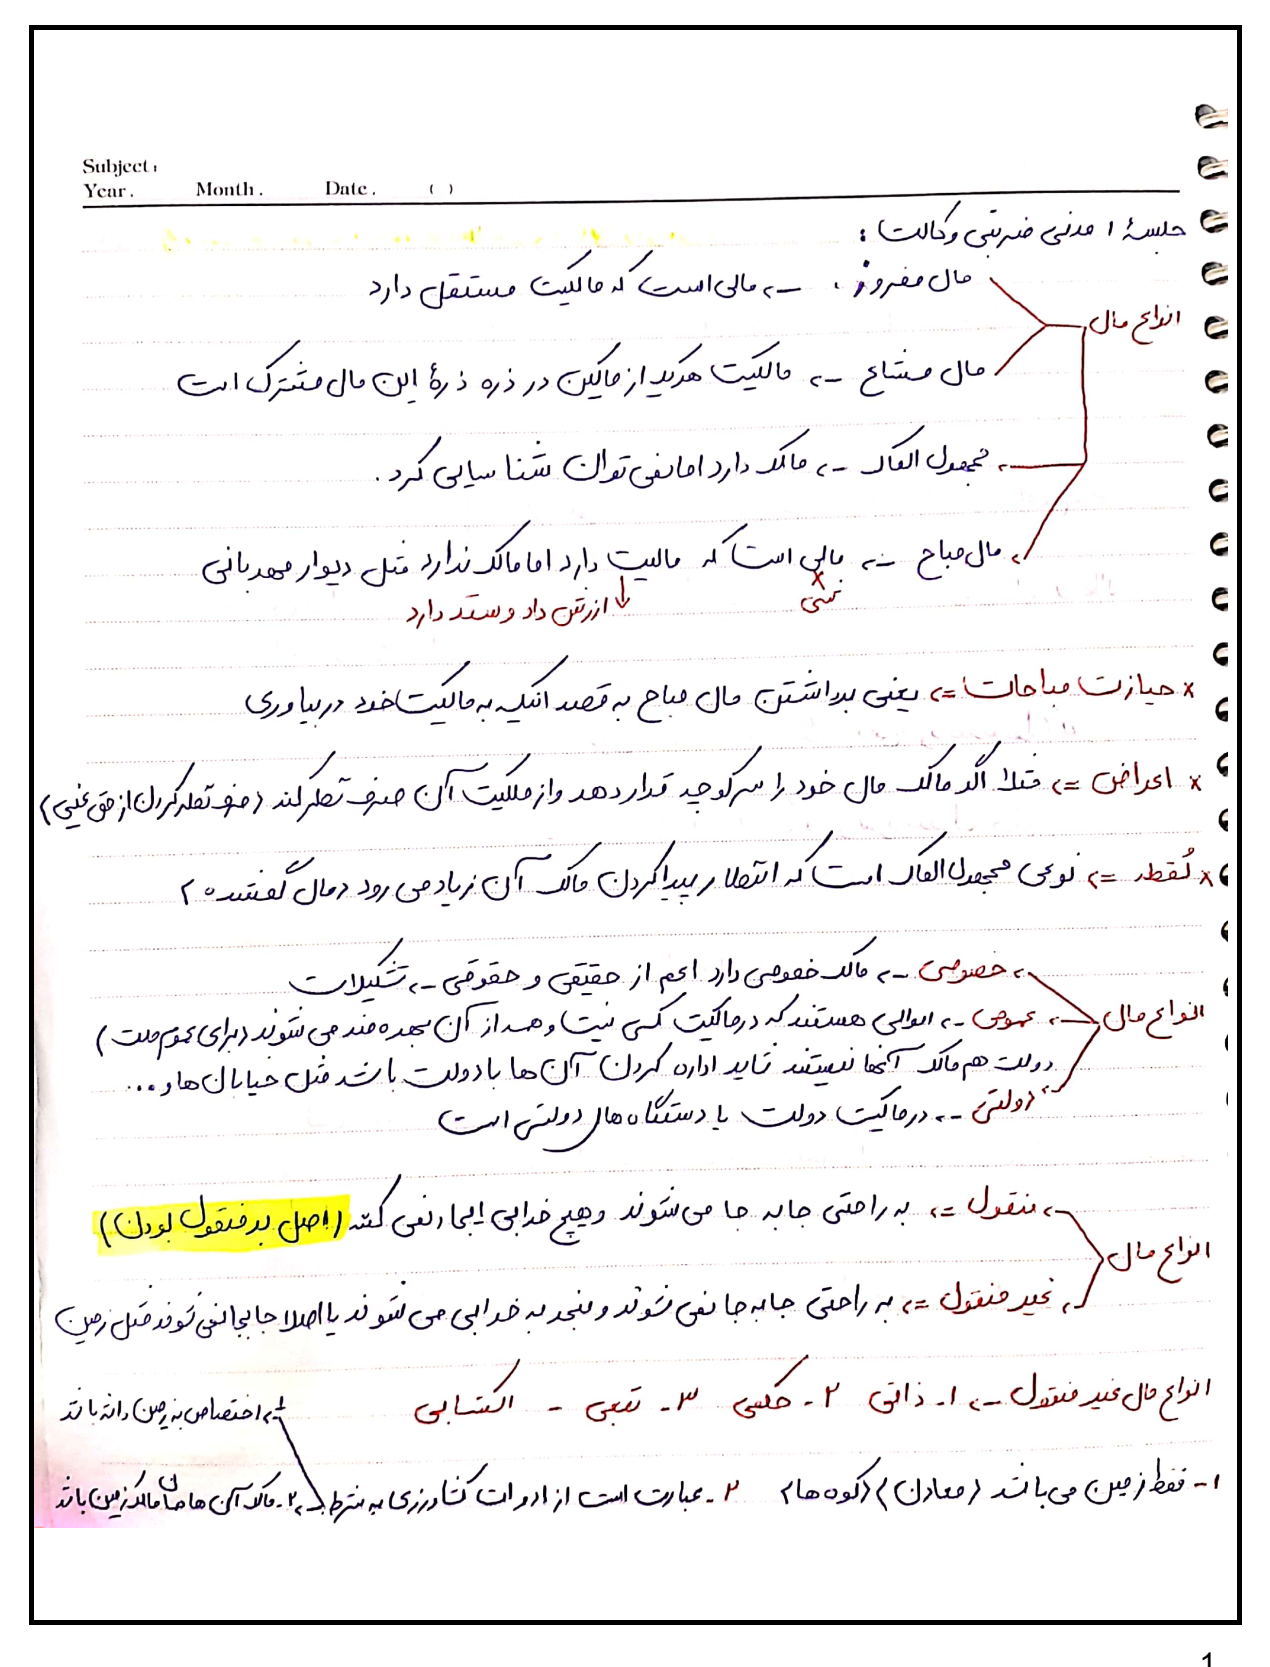 Subject:
Year. Month. Date. ( )
جلسهٔ ۱ مدنی ضربتی وکالت :
انواع مال
مال مفروز ← مالی است که مالکیت مستقل دارد
مال مشاع ← مالکیت هریک از مالکین در ذره ذرهٔ این مال مشترک است
مجهول المالک ← مالک دارد اما نمی توان شناسایی کرد .
مال مباح ← مالی است که مالیت دارد اما مالک ندارد مثل دیوار مهربانی
شی ارزش داد و ستد دارد
x حیازت مباحات ⇐ یعنی برداشتن مال مباح به قصد اینکه به مالکیت خود دربیاوری
x اعراض ⇐ مثلا اگر مالک مال خود را سر کوچه قرار دهد و از مالکیت آن صرف نظر کند (صرف نظر کردن از حق عینی)
x لُقطه ⇐ نوعی مجهول المالک است که انتظار پیدا کردن مالک آن زیاد می رود (مال گمشده)
انواع مال
خصوصی ← مالک خصوصی دارد اعم از حقیقی و حقوقی ← تشکیلات
عمومی ← اموالی هستند که در مالکیت کسی نیست و همه از آن بهره مند می شوند (برای عموم ملت)
دولت هم مالک آنها نیستند شاید اداره کردن آن ها با دولت باشد مثل خیابان ها و ...
دولتی ← در مالکیت دولت یا دستگاه های دولتی است
انواع مال
منقول ⇐ به راحتی جا به جا می شوند و هیچ خرابی ایجاد نمی کند (اصل بر منقول بودن)
غیر منقول ⇐ به راحتی جابه جا نمی شوند و منجر به خرابی می شوند یا اصلا جابجا نمی شوند مثل زمین
انواع مال غیر منقول ← ۱- ذاتی ۲- حکمی ۳- تبعی - اکتسابی
۱- اختصاص به زمین داشته باشد
۱- فقط زمین می باشد (معادن) (کوه ها) ۲- عبارت است از ادوات کشاورزی به شرط ۲- مالک آن ها همان مالک زمین باشد
1